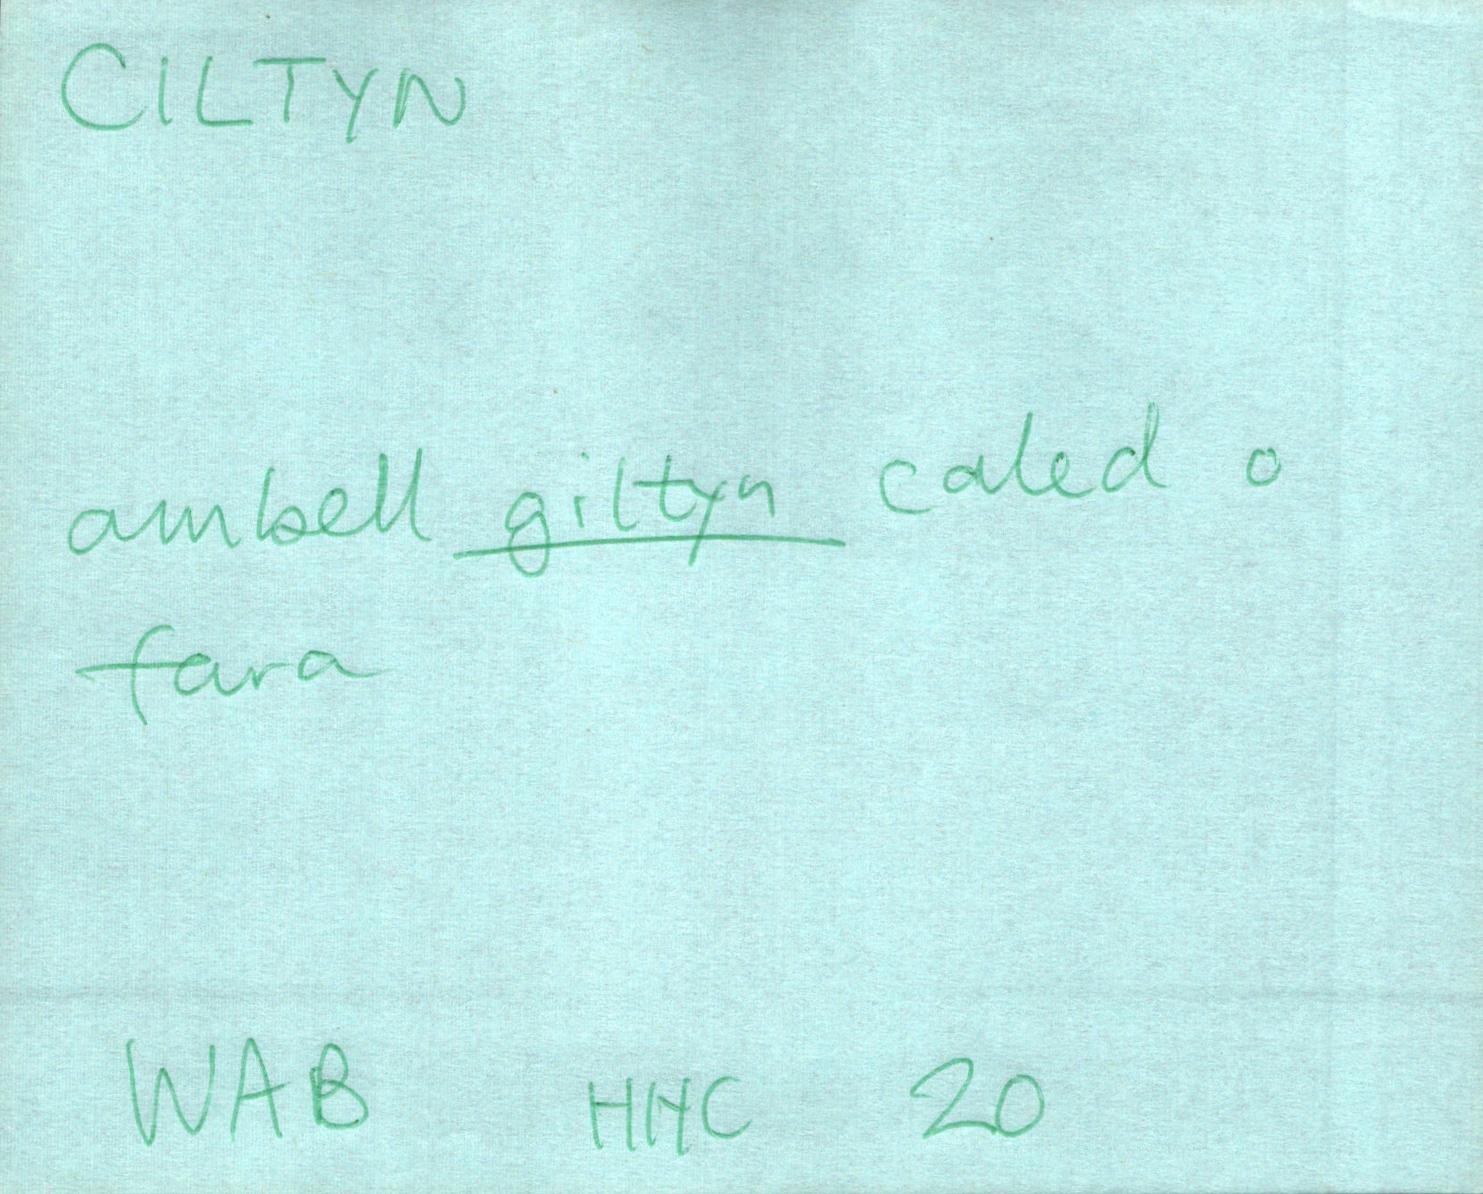 CILTYN
ambell giltyn caled o
fara
WAB HHC 20